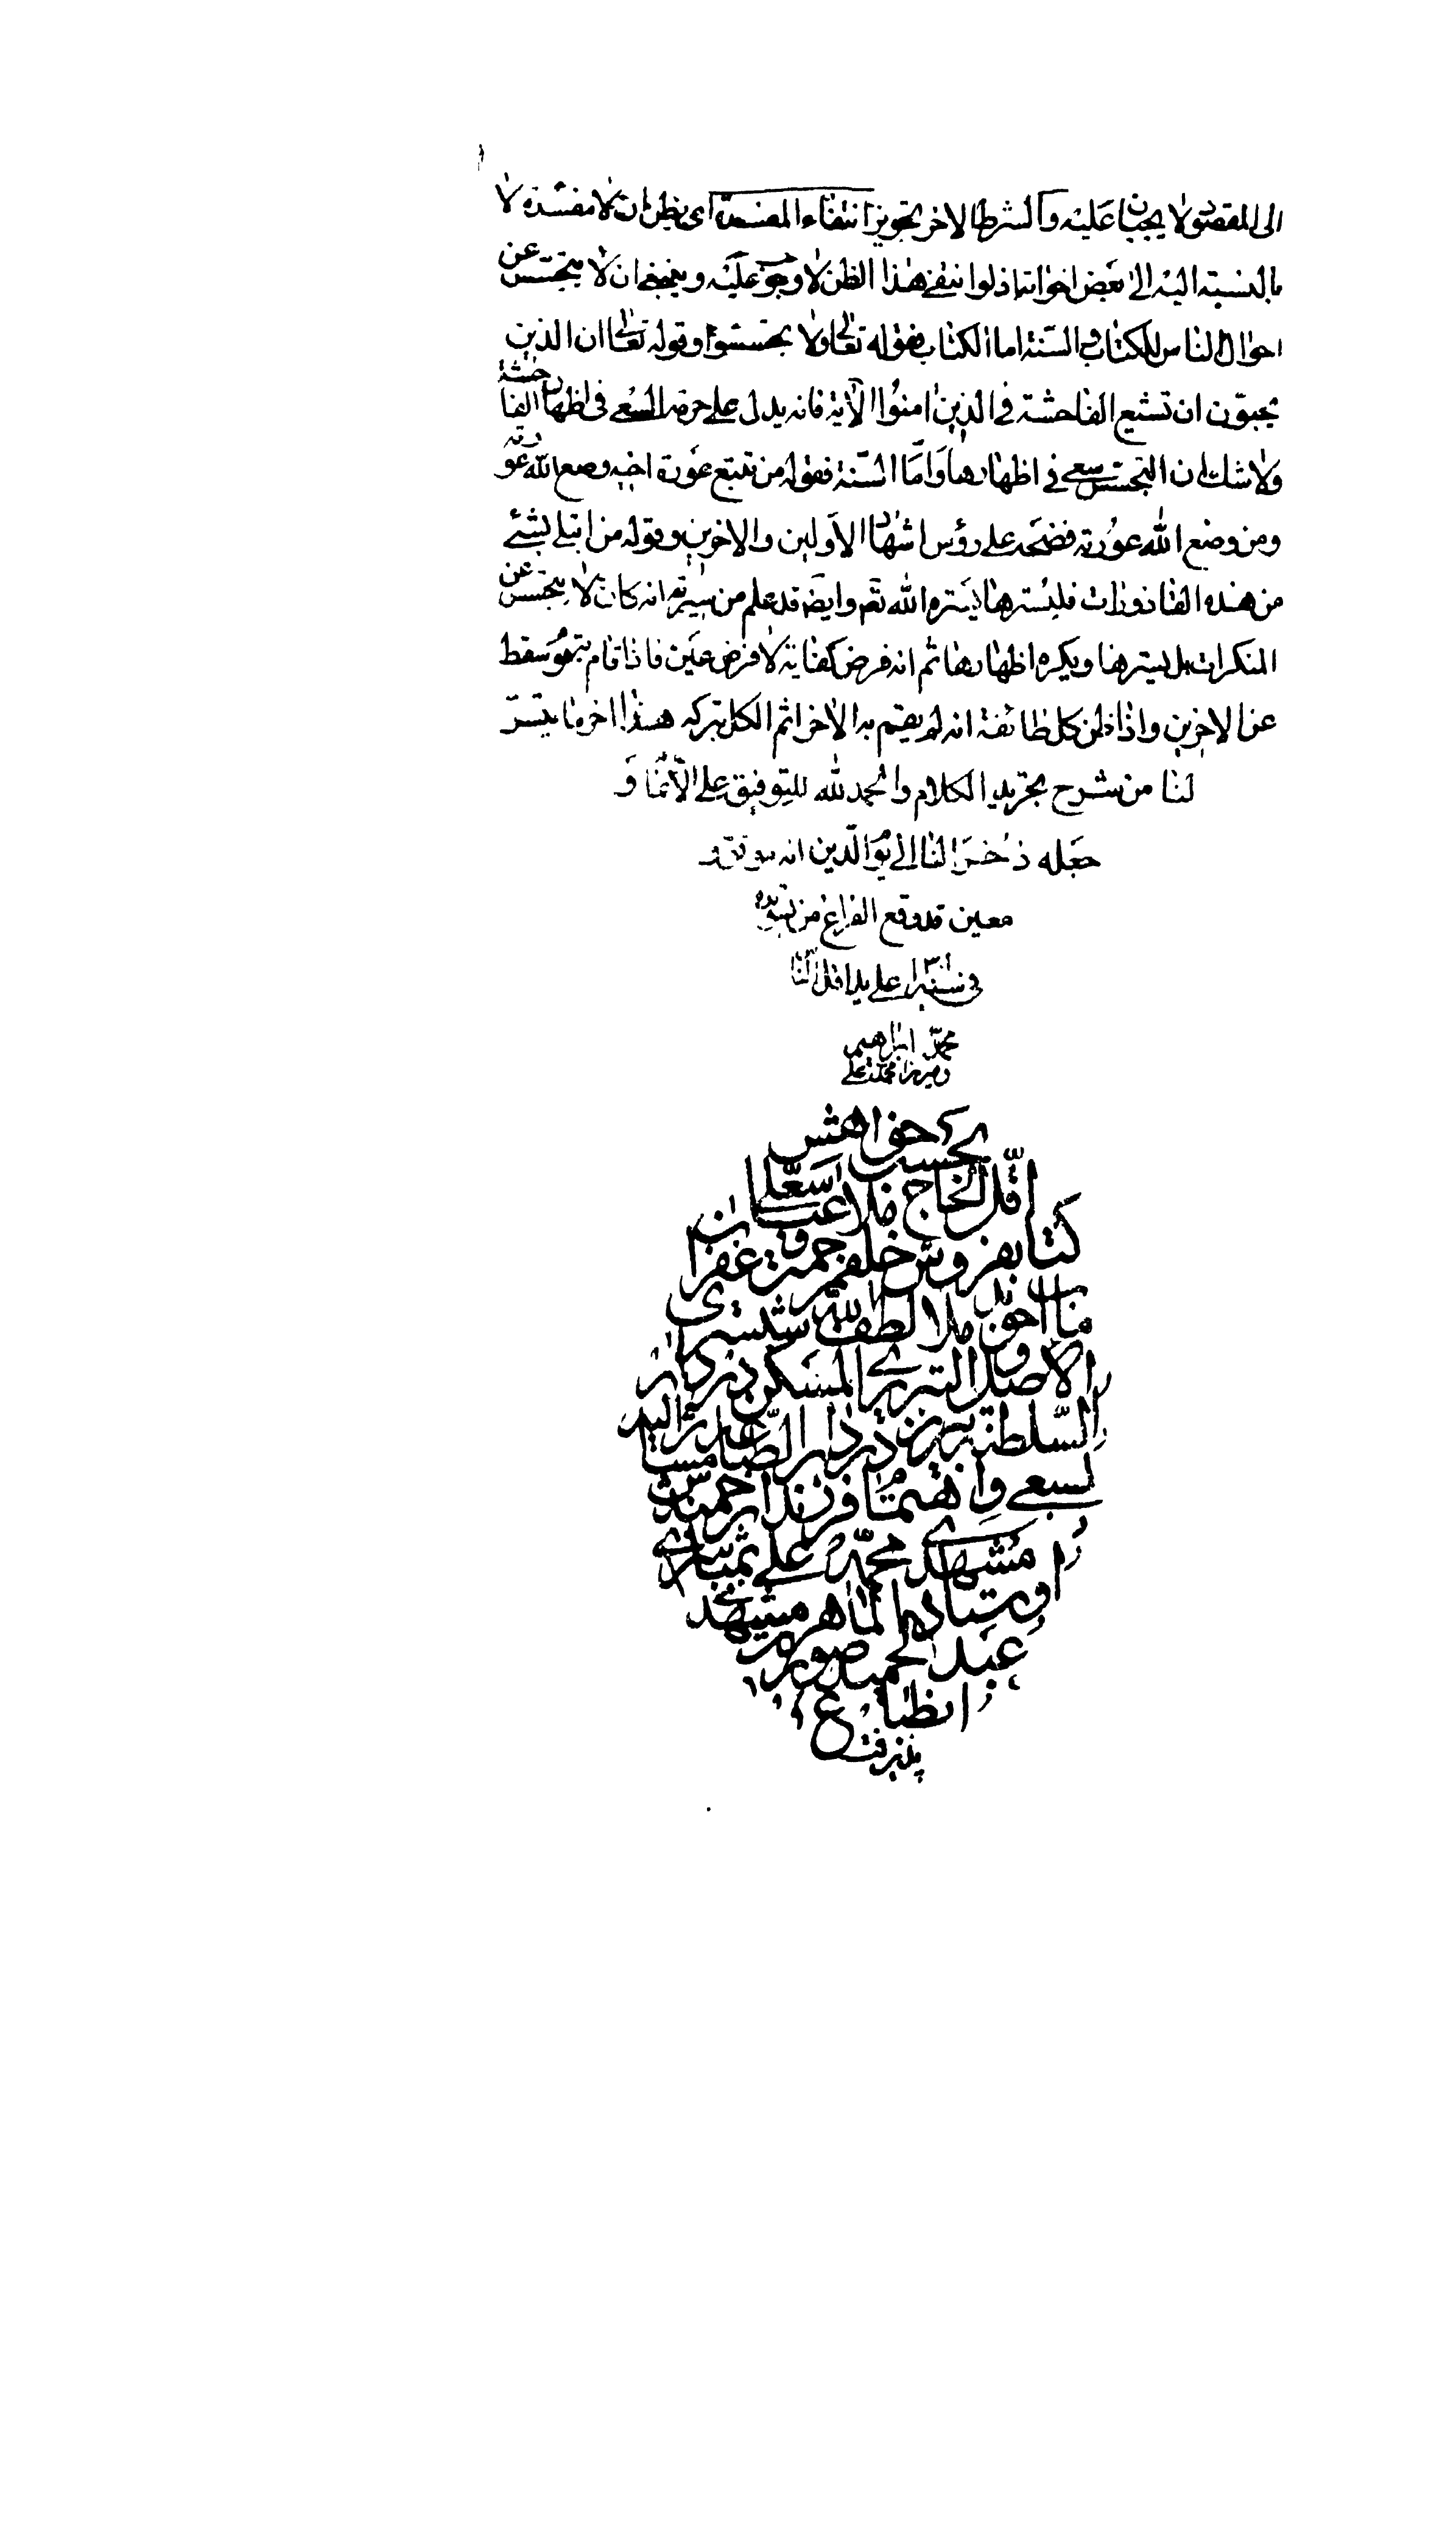 الى المقصود لا يجبان عليه والشرط الاخر تجويز انتفاء المفسدة اى يظن ان لا مفسدة لا
بالنسبته اليه الى بعض اخوانه اذ لو انتفى هذا الظن لا وجوب عليه وينبغى ان لا يتجسس عن
احوال الناس للكتاب والسّنة اما الكتاب فقوله تعالى ولا تجسسوا وقوله تعالى ان الذين
يحبون ان تشيع الفاحشة فى الذين امنوا الآية فانه يدل على حرمة السعى فى اظهار الفاحشة
ولا شك ان التجسس سعى فى اظهارها وامّا السّنة فقوله من تتبع عورة اخيه وضع الله عورته
ومن وضع الله عورته فضحه على رؤس اشهاد الاولين والاخرين وقوله من ابتلى بشئ
من هذه القاذورات فليسترها يستره الله تعم وايضا قد علم من سيرته انه كان لا يتجسس عن
المنكرات بل يسترها ويكره اظهارها ثم انه فرض كفاية لا فرض عين فاذا قام به قوم سقط
عن الاخرين واذا ظن كل طائفة انه لم يقم به الاخر اثم الكل بتركه هذا اخر ما يتسرّ
لنا من شرح تجريد الكلام والحمد لله للتوفيق على الاتمام و
جعله ذخرا لنا الى يوم الدين انه
معين قد وقع الفراغ من تسويده
فى سنة على يد اقل
محمد ابراهيم
محمد على
بحسب خواهش
اقل الحاج ملا عباسعلى
كتابفروش خلف رحمت و غفران
ملا لطف الله شبسترى
الاصل و التبريزى المسكن در دار
السلطنة تبريز در دار
بسعى و اهتمام فرزند ارجمندش
مشهدى محمد على بمباشرى
اوستاد الماهر مشهدى
عبد الحميد صورت
انطباع
پذيرفت